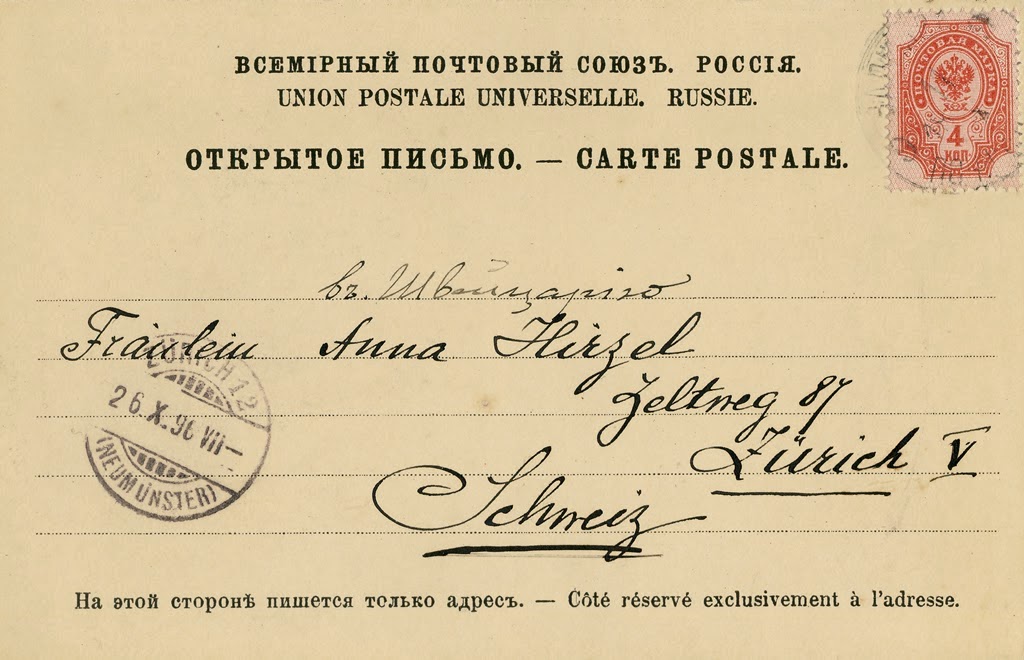 ВСЕМІРНЫЙ ПОЧТОВЫЙ СОЮЗЪ. РОССІЯ.
UNION POSTALE UNIVERSELLE. RUSSIE.
ОТКРЫТОЕ ПИСЬМО. — CARTE POSTALE.
ПОЧТОВАЯ МАРКА
4
КОП.
въ Швейцарію
Fräulein Anna Hirzel
Zeltweg 87
Zürich V
Schweiz
ZÜRICH 12
26.X.96 VII—
(NEUMÜNSTER)
На этой сторонѣ пишется только адресъ. — Côté réservé exclusivement à l'adresse.